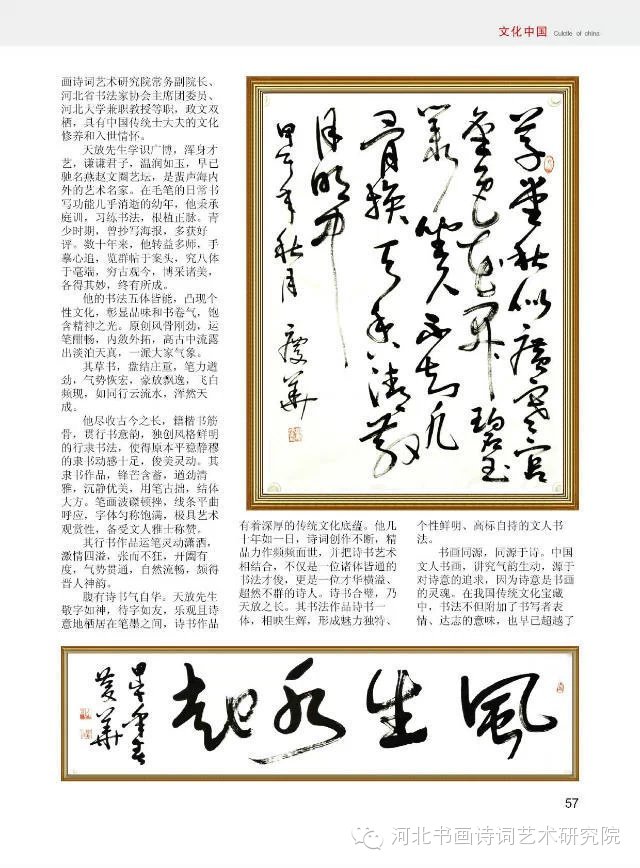 文化中国 Culctle of china
画诗词艺术研究院常务副院长、
河北省书法家协会主席团委员、
河北大学兼职教授等职，政文双
栖，具有中国传统士大夫的文化
修养和入世情怀。
天放先生学识广博，浑身才
艺，谦谦君子，温润如玉，早已
驰名燕赵文圈艺坛，是蜚声海内
外的艺术名家。在毛笔的日常书
写功能几乎消逝的幼年，他秉承
庭训，习练书法，根植正脉。青
少时期，曾抄写海报，多获好
评。数十年来，他转益多师，手
摹心追，览群帖于案头，究八体
于毫端，穷古观今，博采诸美，
各得其妙，终有所成。
他的书法五体皆能，凸现个
性文化，彰显品味和书卷气，饱
含精神之光。原创风骨刚劲，运
笔酣畅，内敛外拓，高古中流露
出淡泊天真，一派大家气象。
其草书，盘结庄重，笔力遒
劲，气势恢宏，豪放飘逸，飞白
频现，如同行云流水，浑然天
成。
他尽收古今之长，籍楷书筋
骨，贯行书意韵，独创风格鲜明
的行隶书法，使得原本平稳静穆
的隶书动感十足，俊美灵动。其
隶书作品，锋芒含蓄，遒劲清
雅，沉静优美，用笔古拙，结体
大方。笔画波磔顿挫，线条平曲
呼应，字体匀称饱满，极具艺术
观赏性，备受文人雅士称赞。
其行书作品运笔灵动潇洒，
激情四溢，张而不狂，开阖有
度，气势贯通，自然流畅，颇得
晋人神韵。
腹有诗书气自华。天放先生
敬字如神，待字如友，乐观且诗
意地栖居在笔墨之间，诗书作品
草堂秋似廣寒宮
金色花開碧玉
叢坐久不知凡
骨換天香清散
月明中
甲午年秋月 慶華
有着深厚的传统文化底蕴。他几
十年如一日，诗词创作不断，精
品力作频频面世，并把诗书艺术
相结合，不仅是一位诸体皆通的
书法才俊，更是一位才华横溢、
超然不群的诗人。诗书合璧，乃
天放之长。其书法作品诗书一
体，相映生辉，形成魅力独特、
个性鲜明、高标自持的文人书
法。
书画同源，同源于诗。中国
文人书画，讲究气韵生动，源于
对诗意的追求，因为诗意是书画
的灵魂。在我国传统文化宝藏
中，书法不但附加了书写者表
情、达志的意味，也早已超越了
風生水起
慶華
57
河北书画诗词艺术研究院